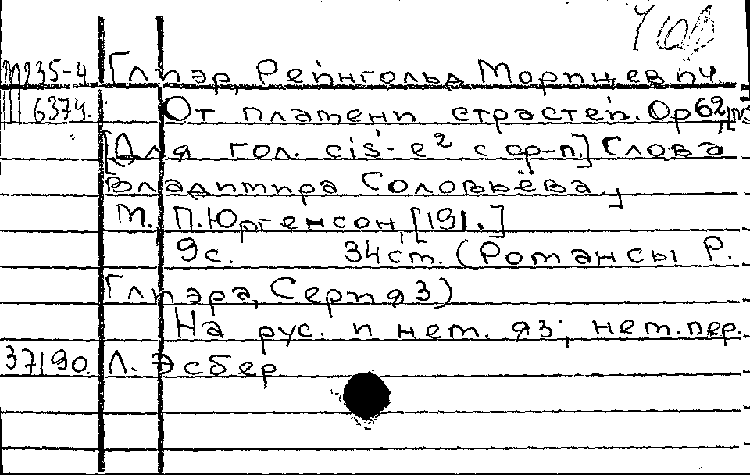 М235-4 Глиэр, Рейнгольд Морицевич
637ч. От пламени страстей. Ор 62,
[Для гол. cis'- e² с ф-п.] Слова
Владимира Соловьёва.
М., П. Юргенсон, [191.]
9с. 34см. (Романсы Р.
Глиэра, Серия 3)
На рус. и нем. яз; нем. пер.
37190. Л. Эсбер